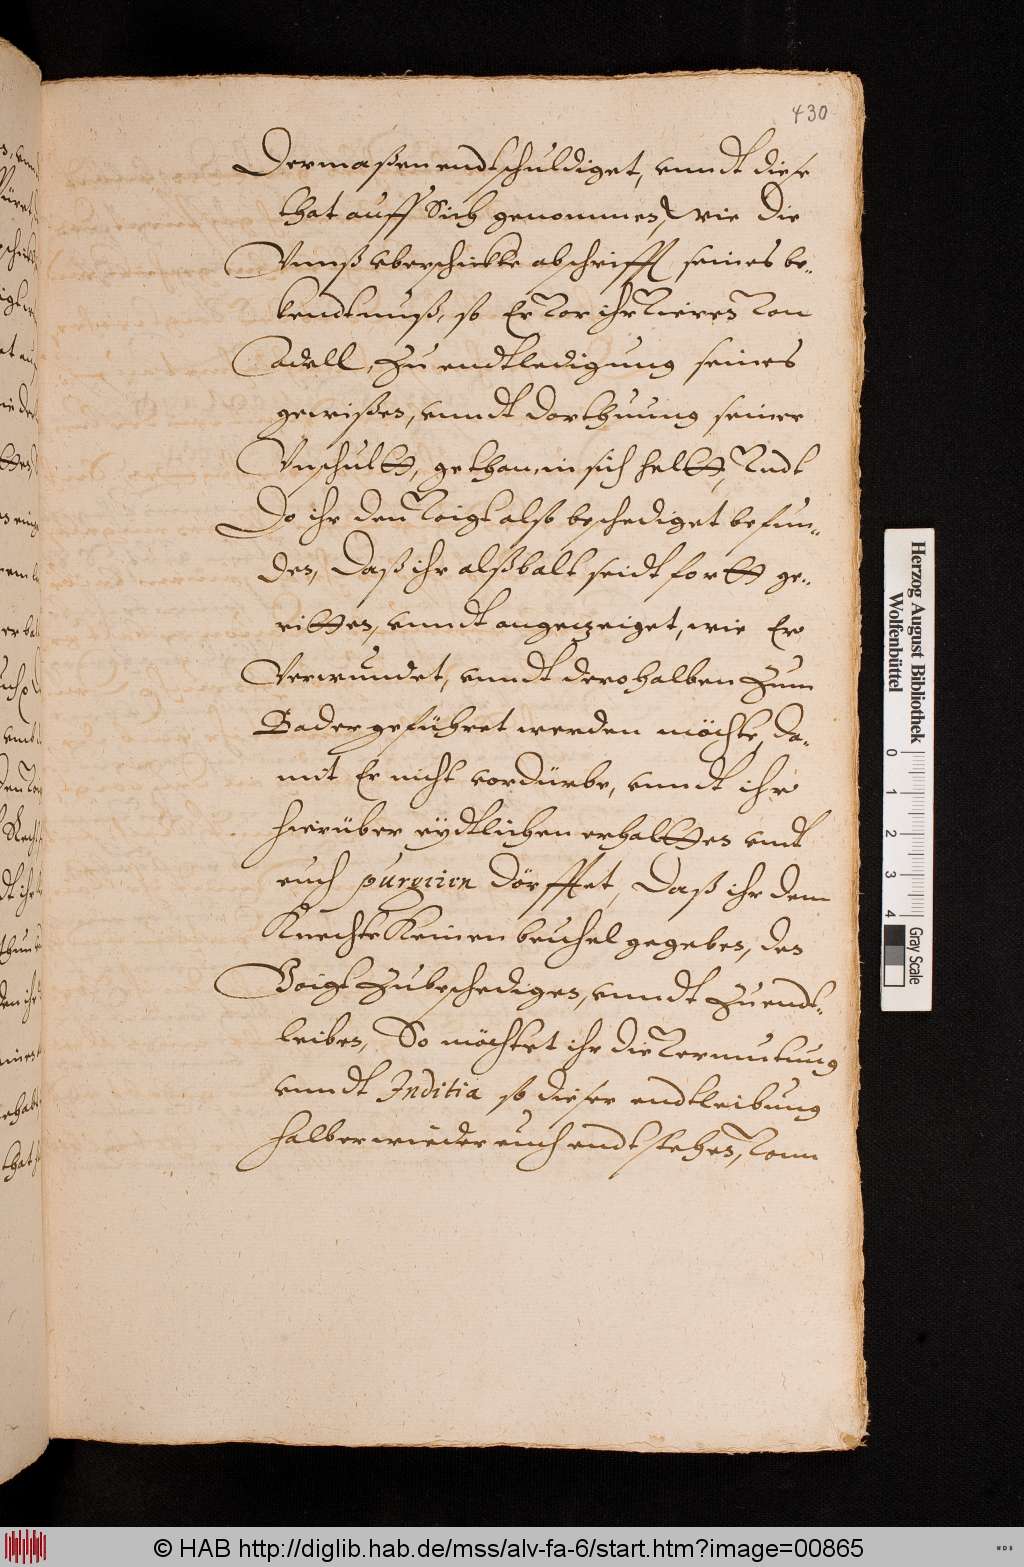 430
Dermaßen endtschuldiget, vnndt diese
that auff Sich genommen, wie die
Vnnß vberschickte abschrifft seines be-
kendtnuß, so Er vor ihr vieren von
Adell, zu endtledigung seines
gewißen, vnndt darthuung seiner
Vnschultt, gethan, in sich heltt, Vndt
Do ihr den Voigt also beschediget befun-
den, Daß ihr alßbalt seidt fortt ge-
ritten, vnndt angezeiget, wie Er
Verwundet, vnndt derohalben zum
Bader geführet werden möchte, da-
mit Er nicht vordürbe, vnndt ihr
hierüber eydtlichen erhaltten vndt
euch purgiren dörfftet, Daß ihr dem
Knechte Keinen beuhel gegeben, den
Voigt zubeschedigen, vnndt zu endt-
leiben, So möchtet ihr die Vermutung
vnndt Inditia so dieser endtleibung
halber wieder euch endtstehen, Vonn
Herzog August Bibliothek
Wolfenbüttel
0 1 2 3 4
Gray Scale
© HAB http://diglib.hab.de/mss/alv-fa-6/start.htm?image=00865
WDB